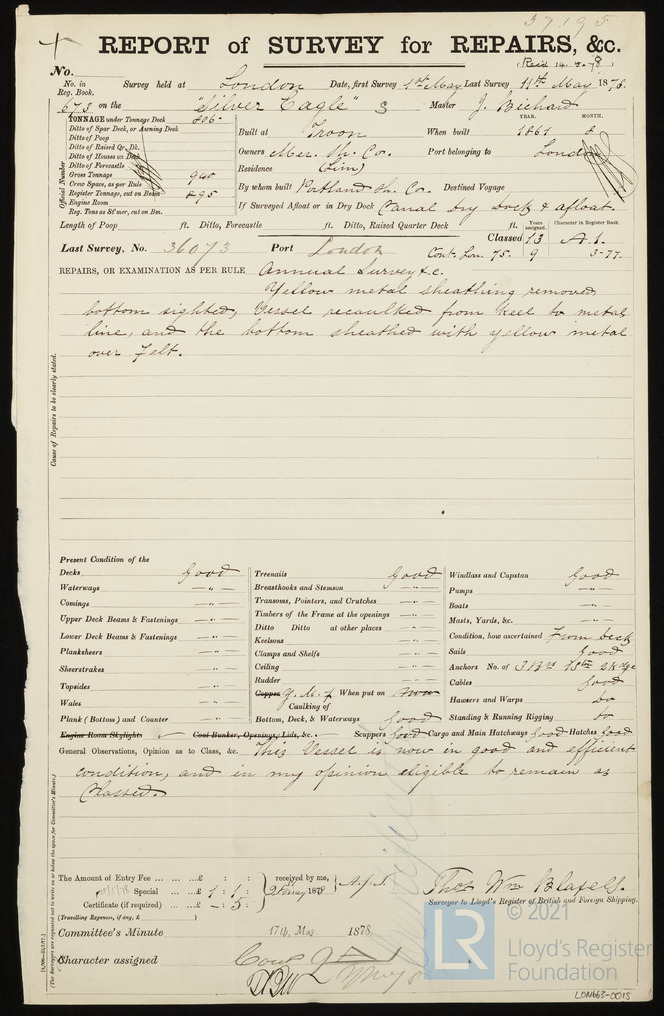 37195
REPORT of SURVEY for REPAIRS, &c.
No.
No. in Reg. Book. Survey held at London Date, first Survey 1st May Last Survey 11th May 1878.
673 on the "Silver Eagle" S Master J. Bichard
TONNAGE under Tonnage Deck 806.
Ditto of Spar Deck, or Awning Deck
Ditto of Poop
Ditto of Raised Qr. Dk.
Ditto of Houses on Deck
Ditto of Forecastle
Gross Tonnage 940
Crew Space, as per Rule
Register Tonnage, cut on Beam 895
Engine Room
Reg. Tons as St'mer, cut on Bm.
Official Number
Built at Troon When built YEAR. 1861 MONTH. 8
Owners Mer. Sh. Co. Port belonging to London
Residence (Lim)
By whom built Portland Sh. Co. Destined Voyage
If Surveyed Afloat or in Dry Dock Canal Dry Dock & afloat.
Length of Poop ft. Ditto, Forecastle ft. Ditto, Raised Quarter Deck ft.
Years assigned. Character in Register Book.
Last Survey, No. 36073 Port London Classed 13 A.1.
Cont. Lon. 75. 9 3-77.
REPAIRS, OR EXAMINATION AS PER RULE Annual Survey &c.
Yellow metal sheathing removed,
bottom sighted, Vessel recaulked from keel to metal
line, and the bottom sheathed with yellow metal
over felt.
Cause of Repairs to be clearly stated.
Present Condition of the
Decks Good
Waterways —"—
Comings —"—
Upper Deck Beams & Fastenings —"—
Lower Deck Beams & Fastenings —"—
Planksheers —"—
Sheerstrakes —"—
Topsides —"—
Wales —"—
Plank (Bottom) and Counter —"—
Treenails Good
Breasthooks and Stemson —"—
Transoms, Pointers, and Crutches —"—
Timbers of the Frame at the openings —"—
Ditto Ditto at other places —"—
Keelsons —"—
Clamps and Shelfs —"—
Ceiling —"—
Rudder —"—
Copper Y. M. f When put on now
Caulking of
Bottom, Deck, & Waterways Good
Windlass and Capstan Good
Pumps —"—
Boats —"—
Masts, Yards, &c. —"—
Condition, how ascertained From deck
Sails Good
Anchors No. of 3 B
Cables Good
Hawsers and Warps Do
Standing & Running Rigging Do
Engine Room Skylights Coal Bunker, Openings, Lids, &c. Scuppers Good Cargo and Main Hatchways Good Hatches Good
General Observations, Opinion as to Class, &c. This Vessel is now in good and efficient
condition, and in my opinion eligible to remain as
Classed.
The Amount of Entry Fee £ : :
Special £ 1 : 1 :
Certificate (if required) £ - : 5 :
(Travelling Expenses, if any, £ )
received by me,
May 1878
Thos. Wm Blafels.
Surveyor to Lloyd's Register of British and Foreign Shipping.
Committee's Minute 17th May 1878.
Character assigned Cont
(The Surveyors are requested not to write on or below the space for Committee's Minute.)
© 2021
LR
Lloyd's Register
Foundation
LON663-0015